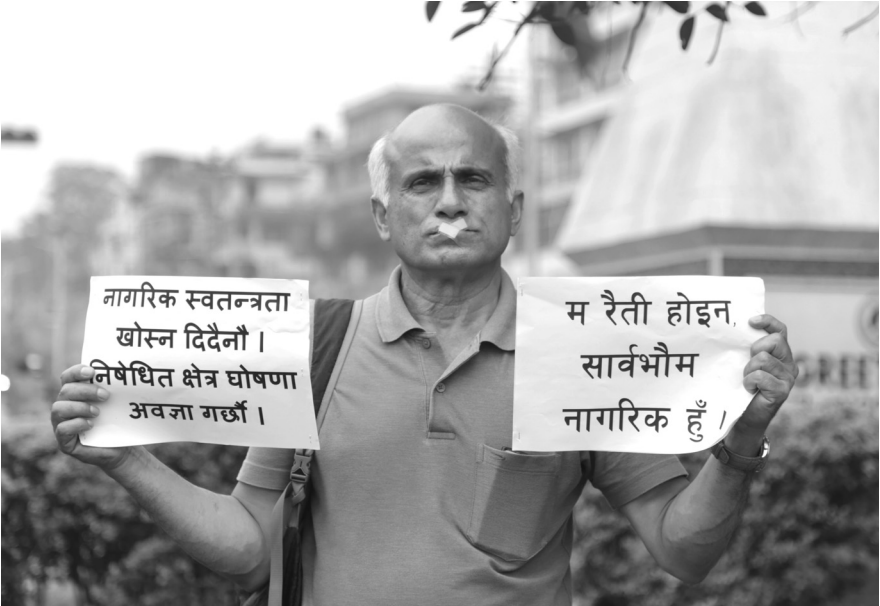 नागरिक स्वतन्त्रता
खोस्न दिदैनौ ।
निषेधित क्षेत्र घोषणा
अवज्ञा गर्छौ ।
म रैती होइन,
सार्वभौम
नागरिक हुँ ।